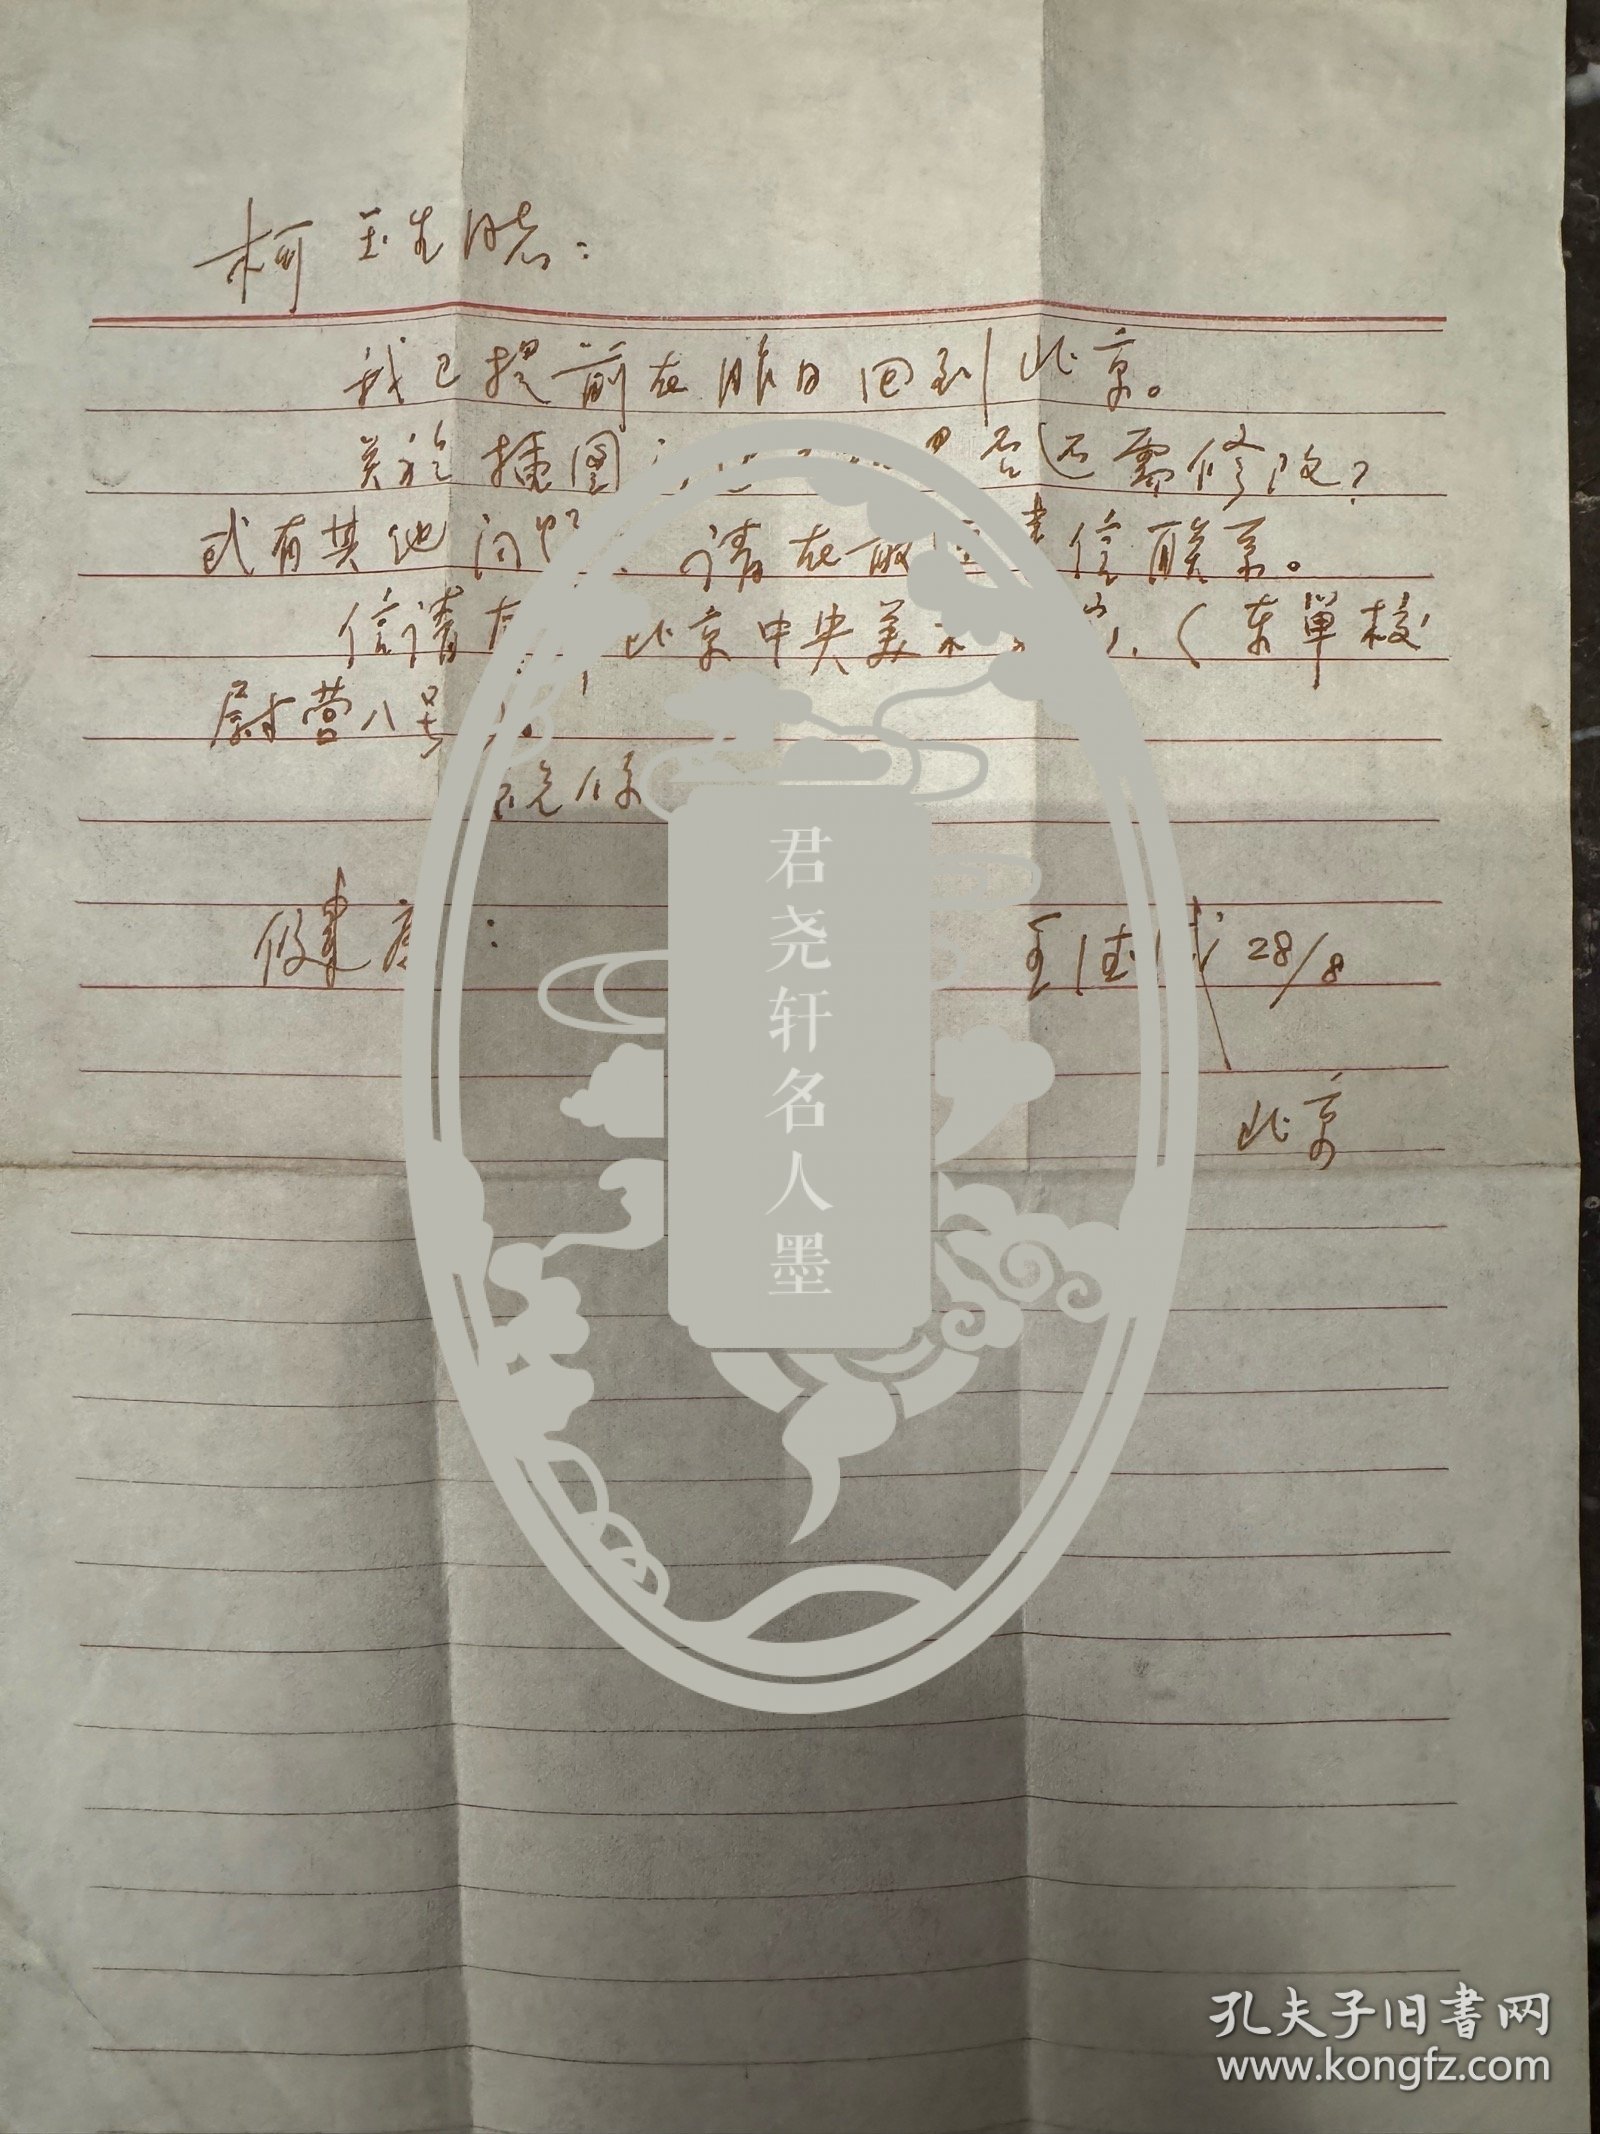 柯玉生
我已提前在昨日回到北京。
关於插图 是否还需修改？
或有其他问题 请在 书信联系。
信请 北京中央美术 （东單校
尉营八号
健康：
王德威 28/8
北京
君尧轩名人墨
孔夫子旧書网
www.kongfz.com